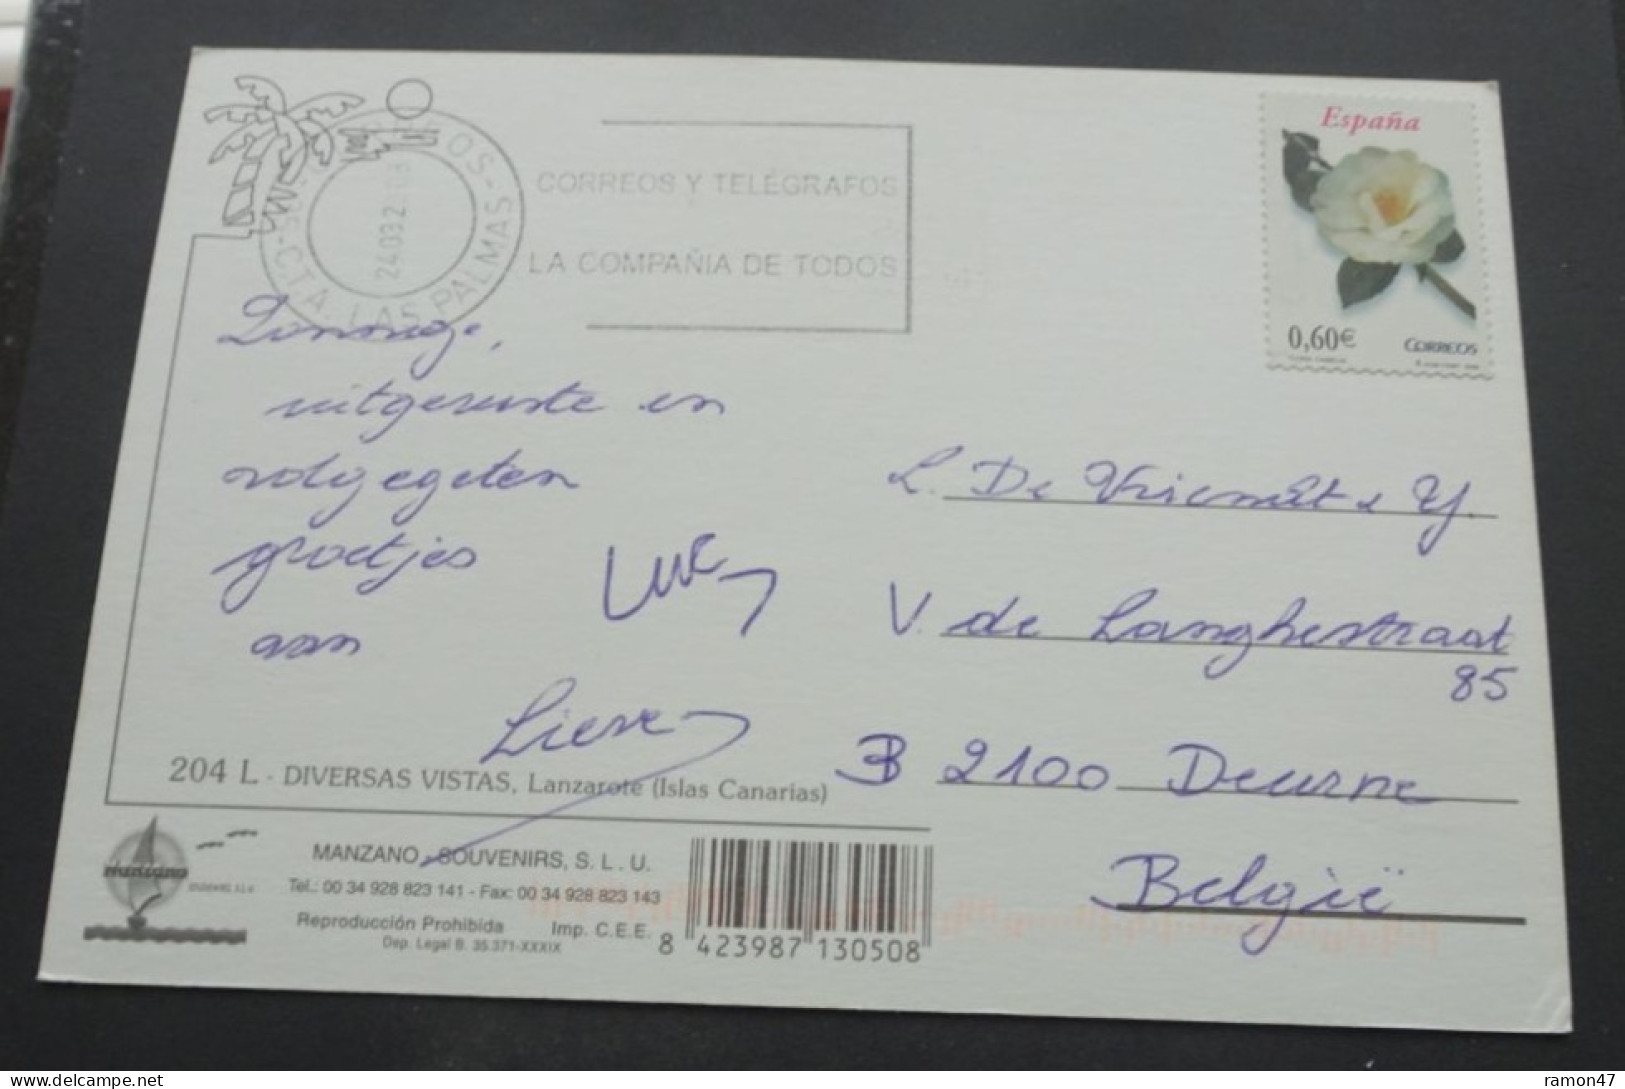 CORREOS Y TELÉGRAFOS
LA COMPAÑIA DE TODOS
CTA. LAS PALMAS
España
0,60€
CORREOS
Zonnige,
uitgeruste en
volgegeten
groetjes
aan
Luc
Lieve
L. De
V. de Langhestraat
85
B 2100 Deurne
België
204 L - DIVERSAS VISTAS, Lanzarote (Islas Canarias)
manzano
MANZANO SOUVENIRS, S. L. U.
Tel.: 00 34 928 823 141 - Fax: 00 34 928 823 143
Reproducción Prohibida Imp. C.E.E.
Dep. Legal B. 35.371-XXXIX
8 423987 130508
ramon47